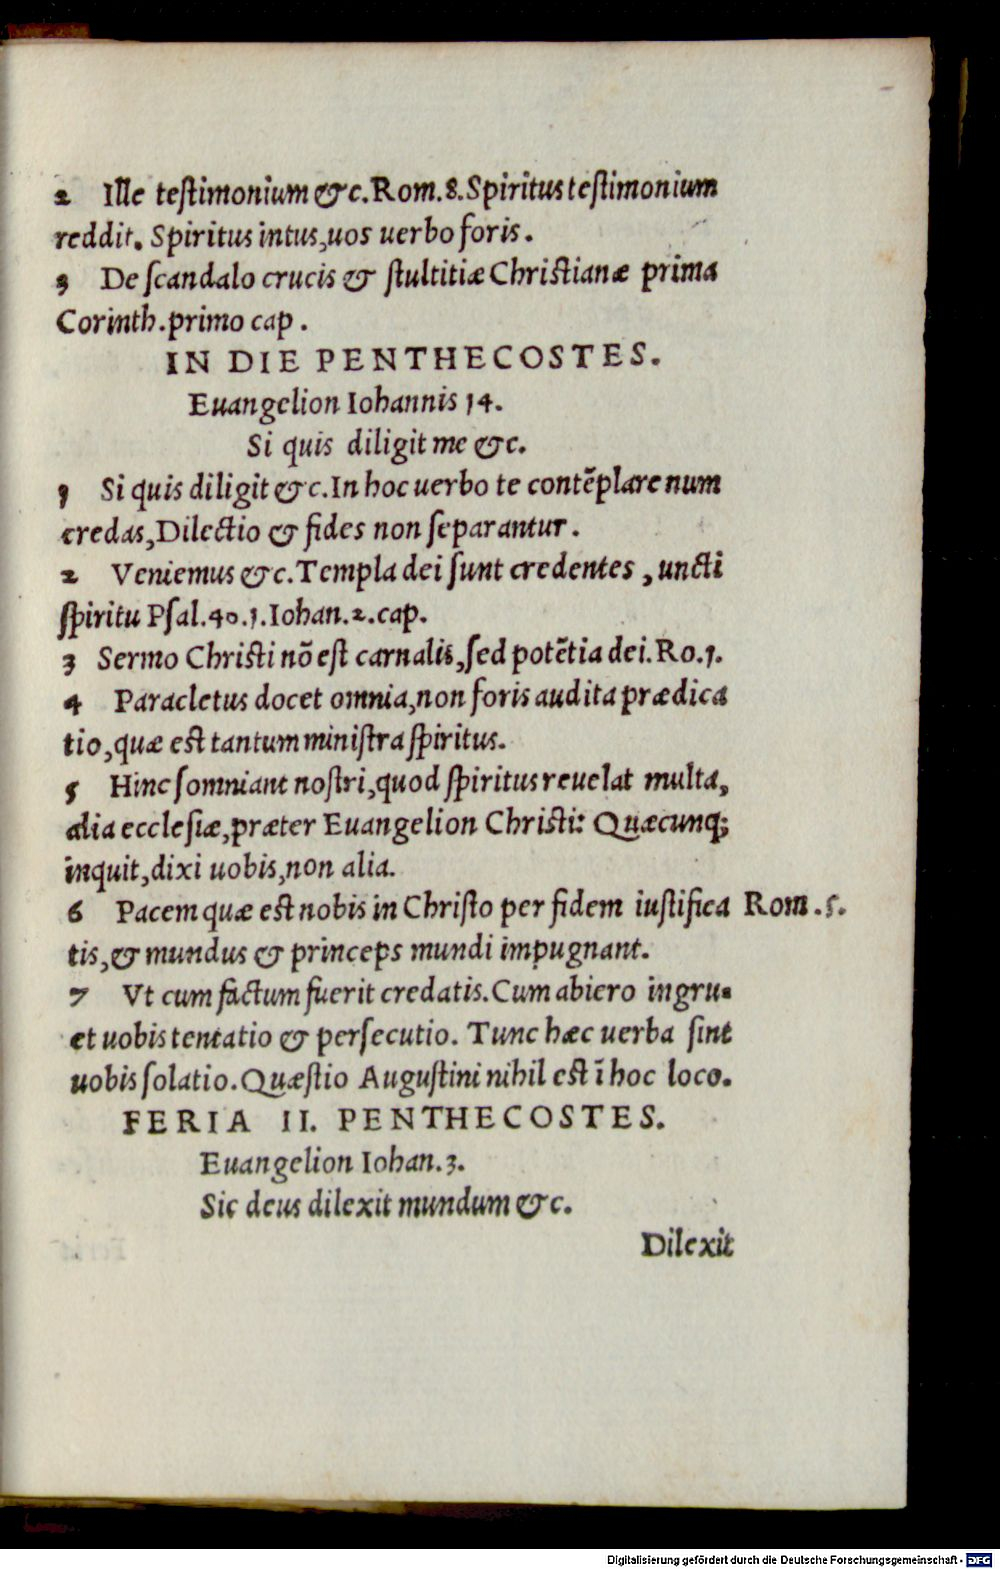 2 Ille testimonium &c. Rom. 8. Spiritus testimonium
reddit. Spiritus intus, uos uerbo foris.
3 De scandalo crucis & stultitiæ Christianæ prima
Corinth. primo cap.
IN DIE PENTHECOSTES.
Euangelion Iohannis 14.
Si quis diligit me &c.
1 Si quis diligit &c. In hoc uerbo te contẽplare num
credas, Dilectio & fides non separantur.
2 Veniemus &c. Templa dei sunt credentes, uncti
spiritu Psal. 40. 1. Iohan. 2. cap.
3 Sermo Christi nõ est carnalis, sed potẽtia dei. Ro. 1.
4 Paracletus docet omnia, non foris audita prædica
tio, quæ est tantum ministra spiritus.
5 Hinc somniant nostri, quod spiritus reuelat multa,
alia ecclesiæ, præter Euangelion Christi: Quæcunq;
inquit, dixi uobis, non alia.
6 Pacem quæ est nobis in Christo per fidem iustifica Rom. 5.
tis, & mundus & princeps mundi impugnant.
7 Vt cum factum fuerit credatis. Cum abiero ingru-
et uobis tentatio & persecutio. Tunc hæc uerba sint
uobis solatio. Quæstio Augustini nihil est ĩ hoc loco.
FERIA II. PENTHECOSTES.
Euangelion Iohan. 3.
Sic deus dilexit mundum &c.
Dilexit
Digitalisierung gefördert durch die Deutsche Forschungsgemeinschaft - DFG